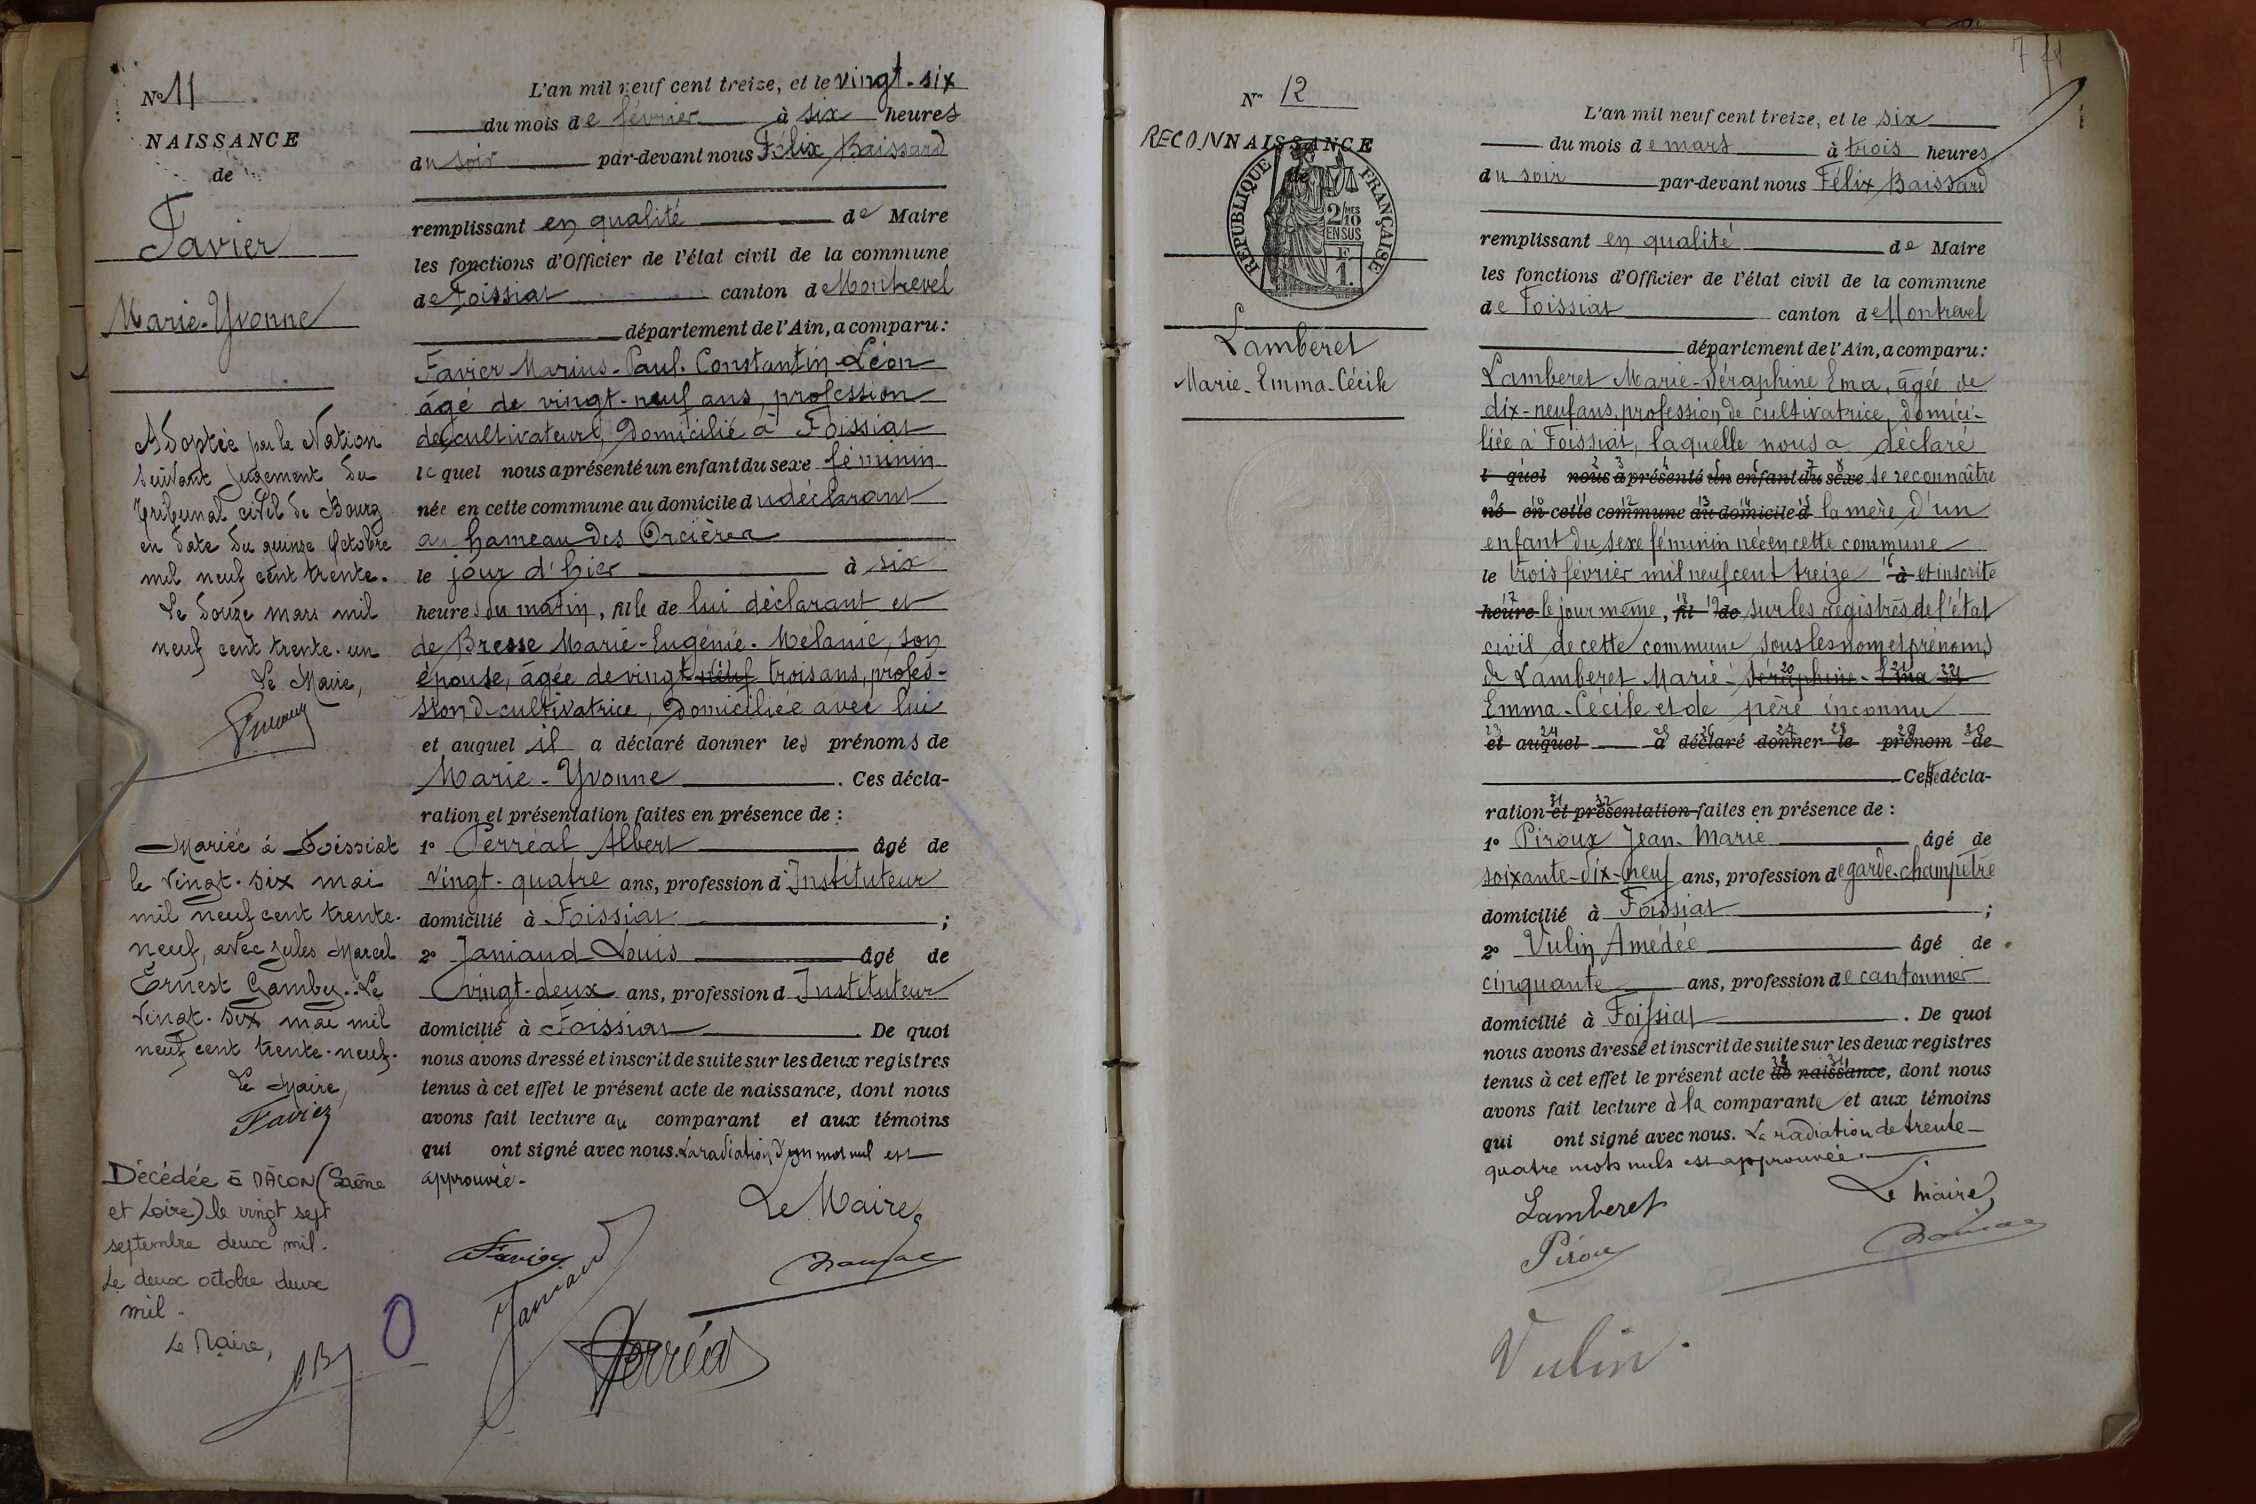 Nº 11
NAISSANCE
de
Favier
Marie-Yvonne
Adoptée par la Nation
suivant jugement du
Tribunal civil de Bourg
en date du quinze Octobre
mil neuf cent trente.
Le douze mars mil
neuf cent trente-un
Le Maire,
Mariée à Foissiat
le vingt-six mai
mil neuf cent trente-
neuf, avec Jules Marcel
Ernest Gambey. Le
vingt-six mai mil
neuf cent trente-neuf.
Le Maire,
Favier
Décédée à MÂCON (Saône
et Loire) le vingt sept
septembre deux mil.
Le deux octobre deux
mil.
Le Maire,
L'an mil neuf cent treize, et le vingt-six
du mois de février à six heures
du soir par-devant nous Félix Baissard
remplissant en qualité de Maire
les fonctions d'Officier de l'état civil de la commune
de Foissiat canton de Montrevel
département de l'Ain, a comparu:
Favier Marius-Paul-Constantin-Léon
âgé de vingt-neuf ans, profession
de cultivateur, domicilié à Foissiat
lequel nous a présenté un enfant du sexe féminin
née en cette commune au domicile du déclarant
au hameau des Orcières
le jour d'hier à six
heures du matin, fille de lui déclarant et
de Bresse Marie-Eugénie-Mélanie, son
épouse, âgée de vingt neuf trois ans, profes-
sion de cultivatrice, domiciliée avec lui
et auquel il a déclaré donner les prénoms de
Marie-Yvonne. Ces décla-
ration et présentation faites en présence de :
1º Perréal Albert âgé de
vingt-quatre ans, profession d'Instituteur
domicilié à Foissiat ;
2º Janiaud Louis âgé de
vingt-deux ans, profession d'Instituteur
domicilié à Foissiat. De quoi
nous avons dressé et inscrit de suite sur les deux registres
tenus à cet effet le présent acte de naissance, dont nous
avons fait lecture au comparant et aux témoins
qui ont signé avec nous. La radiation d'un mot nul est
approuvée.
Le Maire,
Favier
Janiaud
Perréal
7
Nº 12
RECONNAISSANCE
de
REPUBLIQUE FRANÇAISE
2/10 MES
EN SUS
F
1.
Lamberet
Marie-Emma-Cécile
L'an mil neuf cent treize, et le six
du mois de mars à trois heures
du soir par-devant nous Félix Baissard
remplissant en qualité de Maire
les fonctions d'Officier de l'état civil de la commune
de Foissiat canton de Montrevel
département de l'Ain, a comparu:
Lamberet Marie-Séraphine Ema, âgée de
dix-neuf ans, profession de cultivatrice, domici-
liée à Foissiat, laquelle nous a déclaré
l quel nous a présenté un enfant du sexe se reconnaître
né en cette commune au domicile d la mère d'un
enfant du sexe féminin née en cette commune
le trois février mil neuf cent treize à et inscrite
heure le jour même, fil de sur les registres de l'état
civil de cette commune sous les nom et prénoms
de Lamberet Marie-Séraphine-Ema et
Emma-Cécile et de père inconnu
et auquel a déclaré donner le prénom de
Cette décla-
ration et présentation faites en présence de :
1º Piroux Jean-Marie âgé de
soixante-dix-neuf ans, profession de garde-champêtre
domicilié à Foissiat ;
2º Vulin Amédée âgé de
cinquante ans, profession de cantonnier
domicilié à Foissiat. De quoi
nous avons dressé et inscrit de suite sur les deux registres
tenus à cet effet le présent acte de naissance, dont nous
avons fait lecture à la comparante et aux témoins
qui ont signé avec nous. La radiation de trente-
quatre mots nuls est approuvée.
Le Maire,
Lamberet
Pirou
Vulin